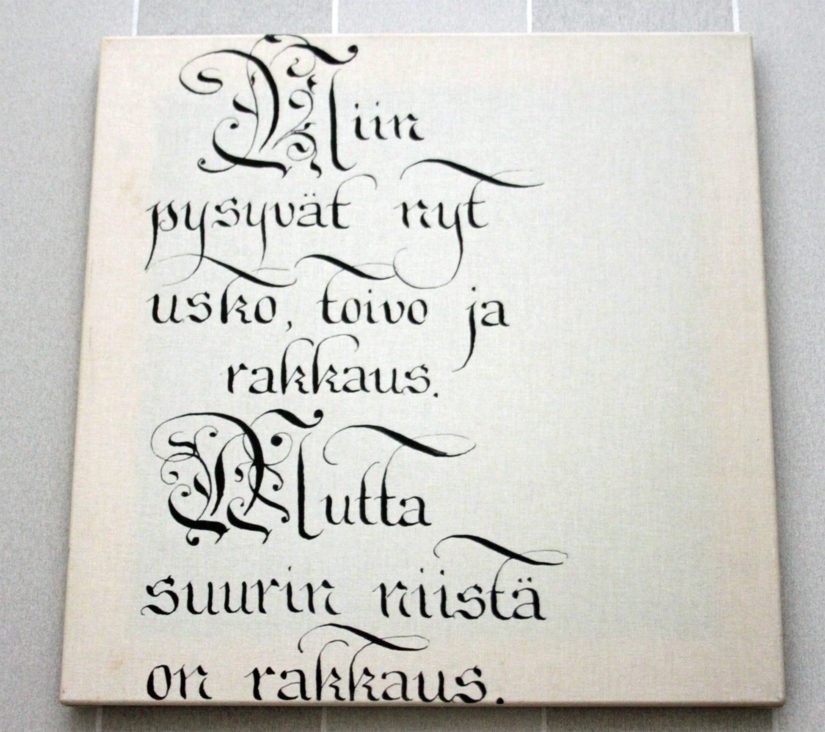 Niin
pysyvät nyt
usko, toivo ja
rakkaus.
Mutta
suurin niistä
on rakkaus.